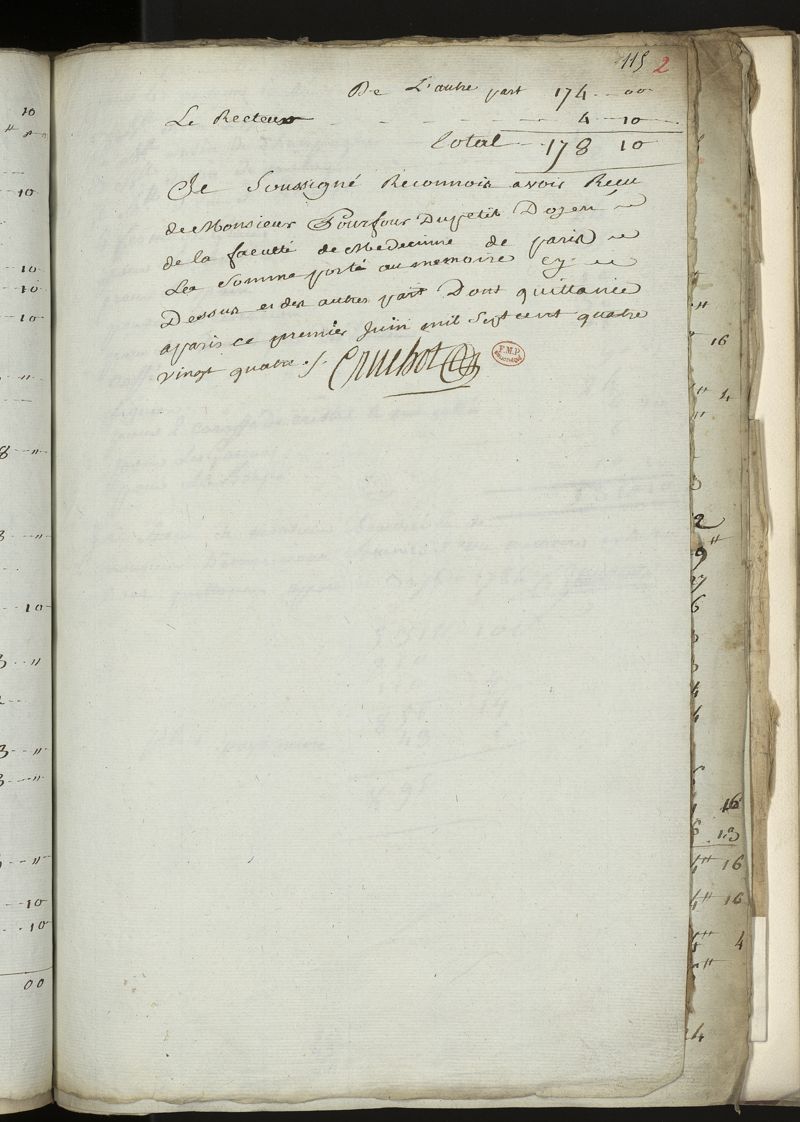 115 2
De L'autre part 174 -- 00
Le Recteur - - - - 4 -- 10
Total -- 178 10
Je Soussigné Reconnois avoir Recu
de Monsieur Pourfour Dupetit Doyen
de la faculté de Medecinne de paris
La Somme porté au memoire cy
Dessus et des autres part Dont quittance
a paris ce premier Juin mil Sept cent quatre
vingt quatre /.
F.M.P.
10
10
10
10
10
8 "
10
10
10
00
16
4
2
9 "
6
16
13
16
16
4